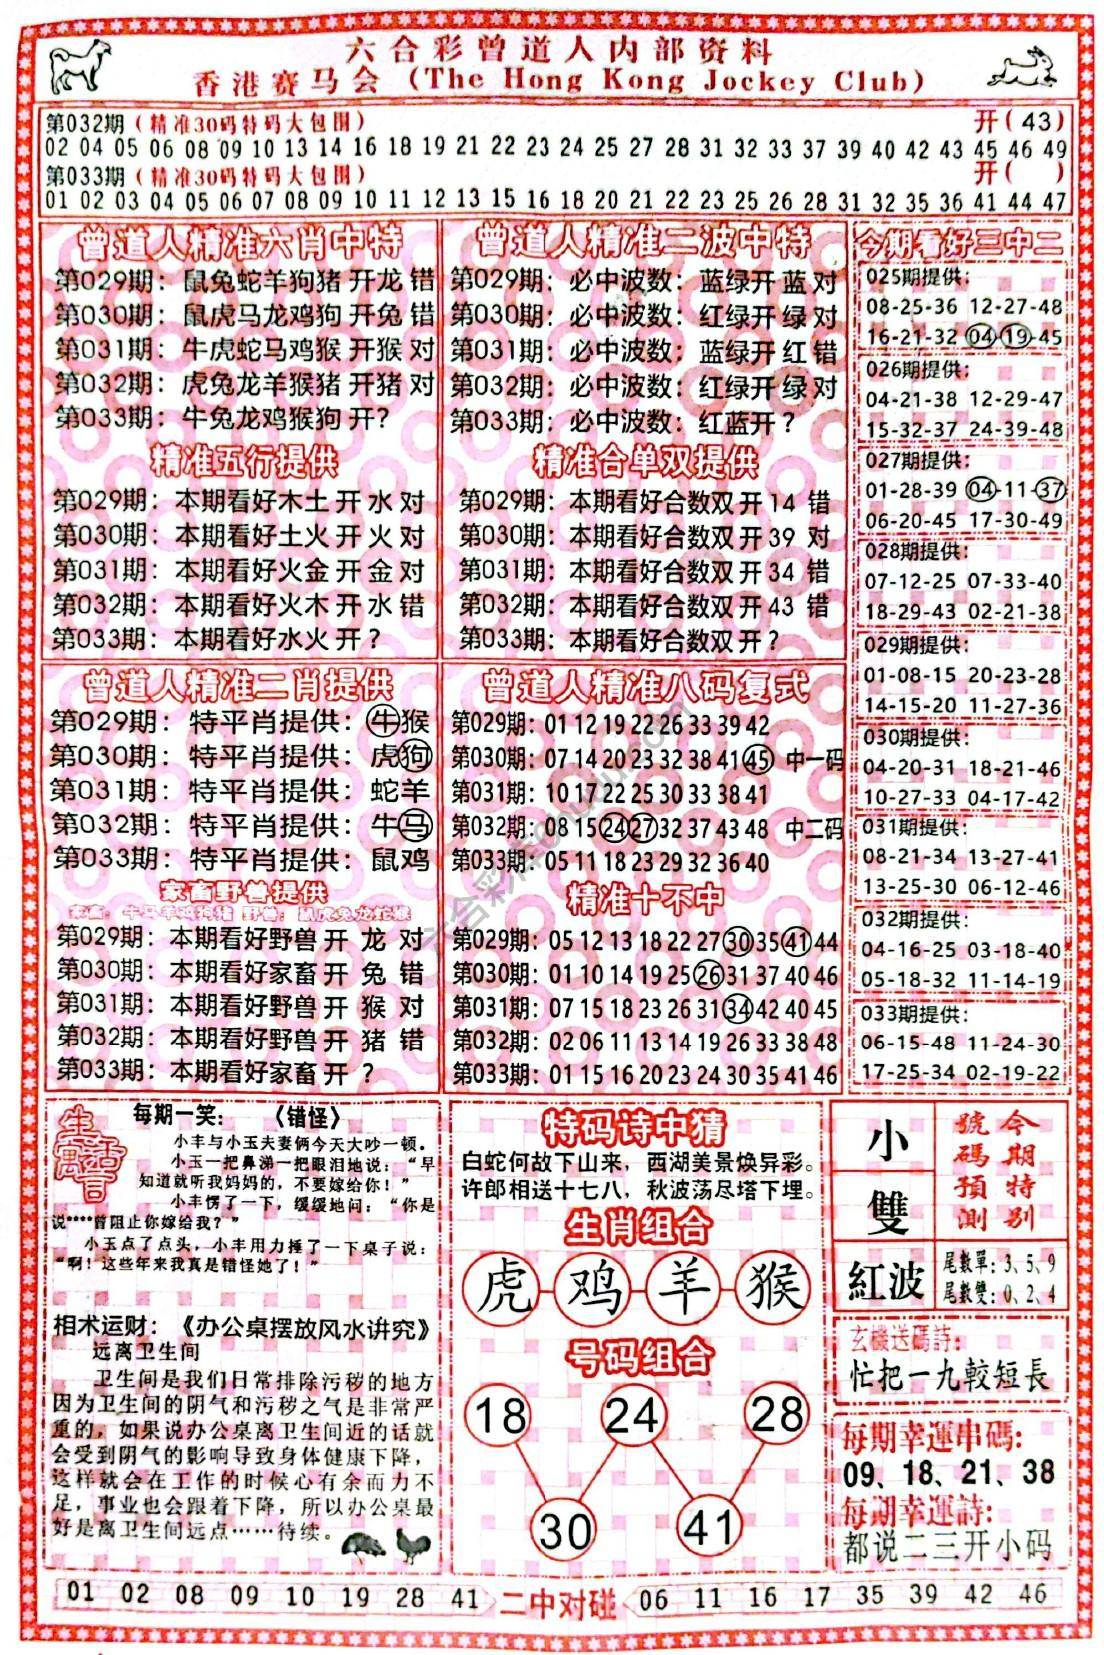 六合彩曾道人内部资料
香港赛马会（The Hong Kong Jockey Club）
第032期（精准30码特码大包围） 开(43)
02 04 05 06 08 09 10 13 14 16 18 19 21 22 23 24 25 27 28 31 32 33 37 39 40 42 43 45 46 49
第033期（精准30码特码大包围） 开( )
01 02 03 04 05 06 07 08 09 10 11 12 13 15 16 18 20 21 22 23 25 26 28 31 32 35 36 41 44 47
曾道人精准六肖中特
第029期：鼠兔蛇羊狗猪开龙错
第030期：鼠虎马龙鸡狗开兔错
第031期：牛虎蛇马鸡猴开猴对
第032期：虎兔龙羊猴猪开猪对
第033期：牛兔龙鸡猴狗开？
精准五行提供
第029期：本期看好木土开水对
第030期：本期看好土火开火对
第031期：本期看好火金开金对
第032期：本期看好火木开水错
第033期：本期看好水火开？
曾道人精准二波中特
第029期：必中波数：蓝绿开蓝对
第030期：必中波数：红绿开绿对
第031期：必中波数：蓝绿开红错
第032期：必中波数：红绿开绿对
第033期：必中波数：红蓝开？
精准合单双提供
第029期：本期看好合数双开14 错
第030期：本期看好合数双开39 对
第031期：本期看好合数双开34 错
第032期：本期看好合数双开43 错
第033期：本期看好合数双开？
今期看好三中二
025期提供：
08-25-36 12-27-48
16-21-32 04-19-45
026期提供：
04-21-38 12-29-47
15-32-37 24-39-48
027期提供：
01-28-39 04-11-37
06-20-45 17-30-49
028期提供：
07-12-25 07-33-40
18-29-43 02-21-38
029期提供：
01-08-15 20-23-28
14-15-20 11-27-36
030期提供：
04-20-31 18-21-46
10-27-33 04-17-42
031期提供：
08-21-34 13-27-41
13-25-30 06-12-46
032期提供：
04-16-25 03-18-40
05-18-32 11-14-19
033期提供：
06-15-48 11-24-30
17-25-34 02-19-22
曾道人精准二肖提供
第029期：特平肖提供：牛猴
第030期：特平肖提供：虎狗
第031期：特平肖提供：蛇羊
第032期：特平肖提供：牛马
第033期：特平肖提供：鼠鸡
家畜野兽提供
家畜：牛马羊鸡狗猪 野兽：鼠虎兔龙蛇猴
第029期：本期看好野兽开 龙 对
第030期：本期看好家畜开 兔 错
第031期：本期看好野兽开 猴 对
第032期：本期看好野兽开 猪 错
第033期：本期看好家畜开 ？
曾道人精准八码复式
第029期：01 12 19 22 26 33 39 42
第030期：07 14 20 23 32 38 41 45 中一码
第031期：10 17 22 25 30 33 38 41
第032期：08 15 24 27 32 37 43 48 中二码
第033期：05 11 18 23 29 32 36 40
精准十不中
第029期：05 12 13 18 22 27 30 35 41 44
第030期：01 10 14 19 25 26 31 37 40 46
第031期：07 15 18 23 26 31 34 42 40 45
第032期：02 06 11 13 14 19 26 33 38 48
第033期：01 15 16 20 23 24 30 35 41 46
生活万音
每期一笑：《错怪》
小丰与小玉夫妻俩今天大吵一顿。
小玉一把鼻涕一把眼泪地说：“早
知道就听我妈妈的，不要嫁给你！”
小丰愣了一下，缓缓地问：“你是
说****曾阻止你嫁给我？”
小玉点了点头，小丰用力捶了一下桌子说：
“啊！这些年来我真是错怪她了！”
相术运财：《办公桌摆放风水讲究》
远离卫生间
卫生间是我们日常排除污秽的地方
因为卫生间的阴气和污秽之气是非常严
重的，如果说办公桌离卫生间近的话就
会受到阴气的影响导致身体健康下降，
这样就会在工作的时候心有余而力不
足，事业也会跟着下降，所以办公桌最
好是离卫生间远点……待续。
特码诗中猜
白蛇何故下山来，西湖美景焕异彩。
许郎相送十七八，秋波荡尽塔下埋。
生肖组合
虎 鸡 羊 猴
号码组合
18 24 28
30 41
小
雙
紅波
今期特别
號碼預測
尾數單：3、5、9
尾數雙：0、2、4
玄機送碼詩：
忙把一九較短長
每期幸運串碼：
09、18、21、38
每期幸運詩：
都说二三开小码
01 02 08 09 10 19 28 41 二中对碰 06 11 16 17 35 39 42 46